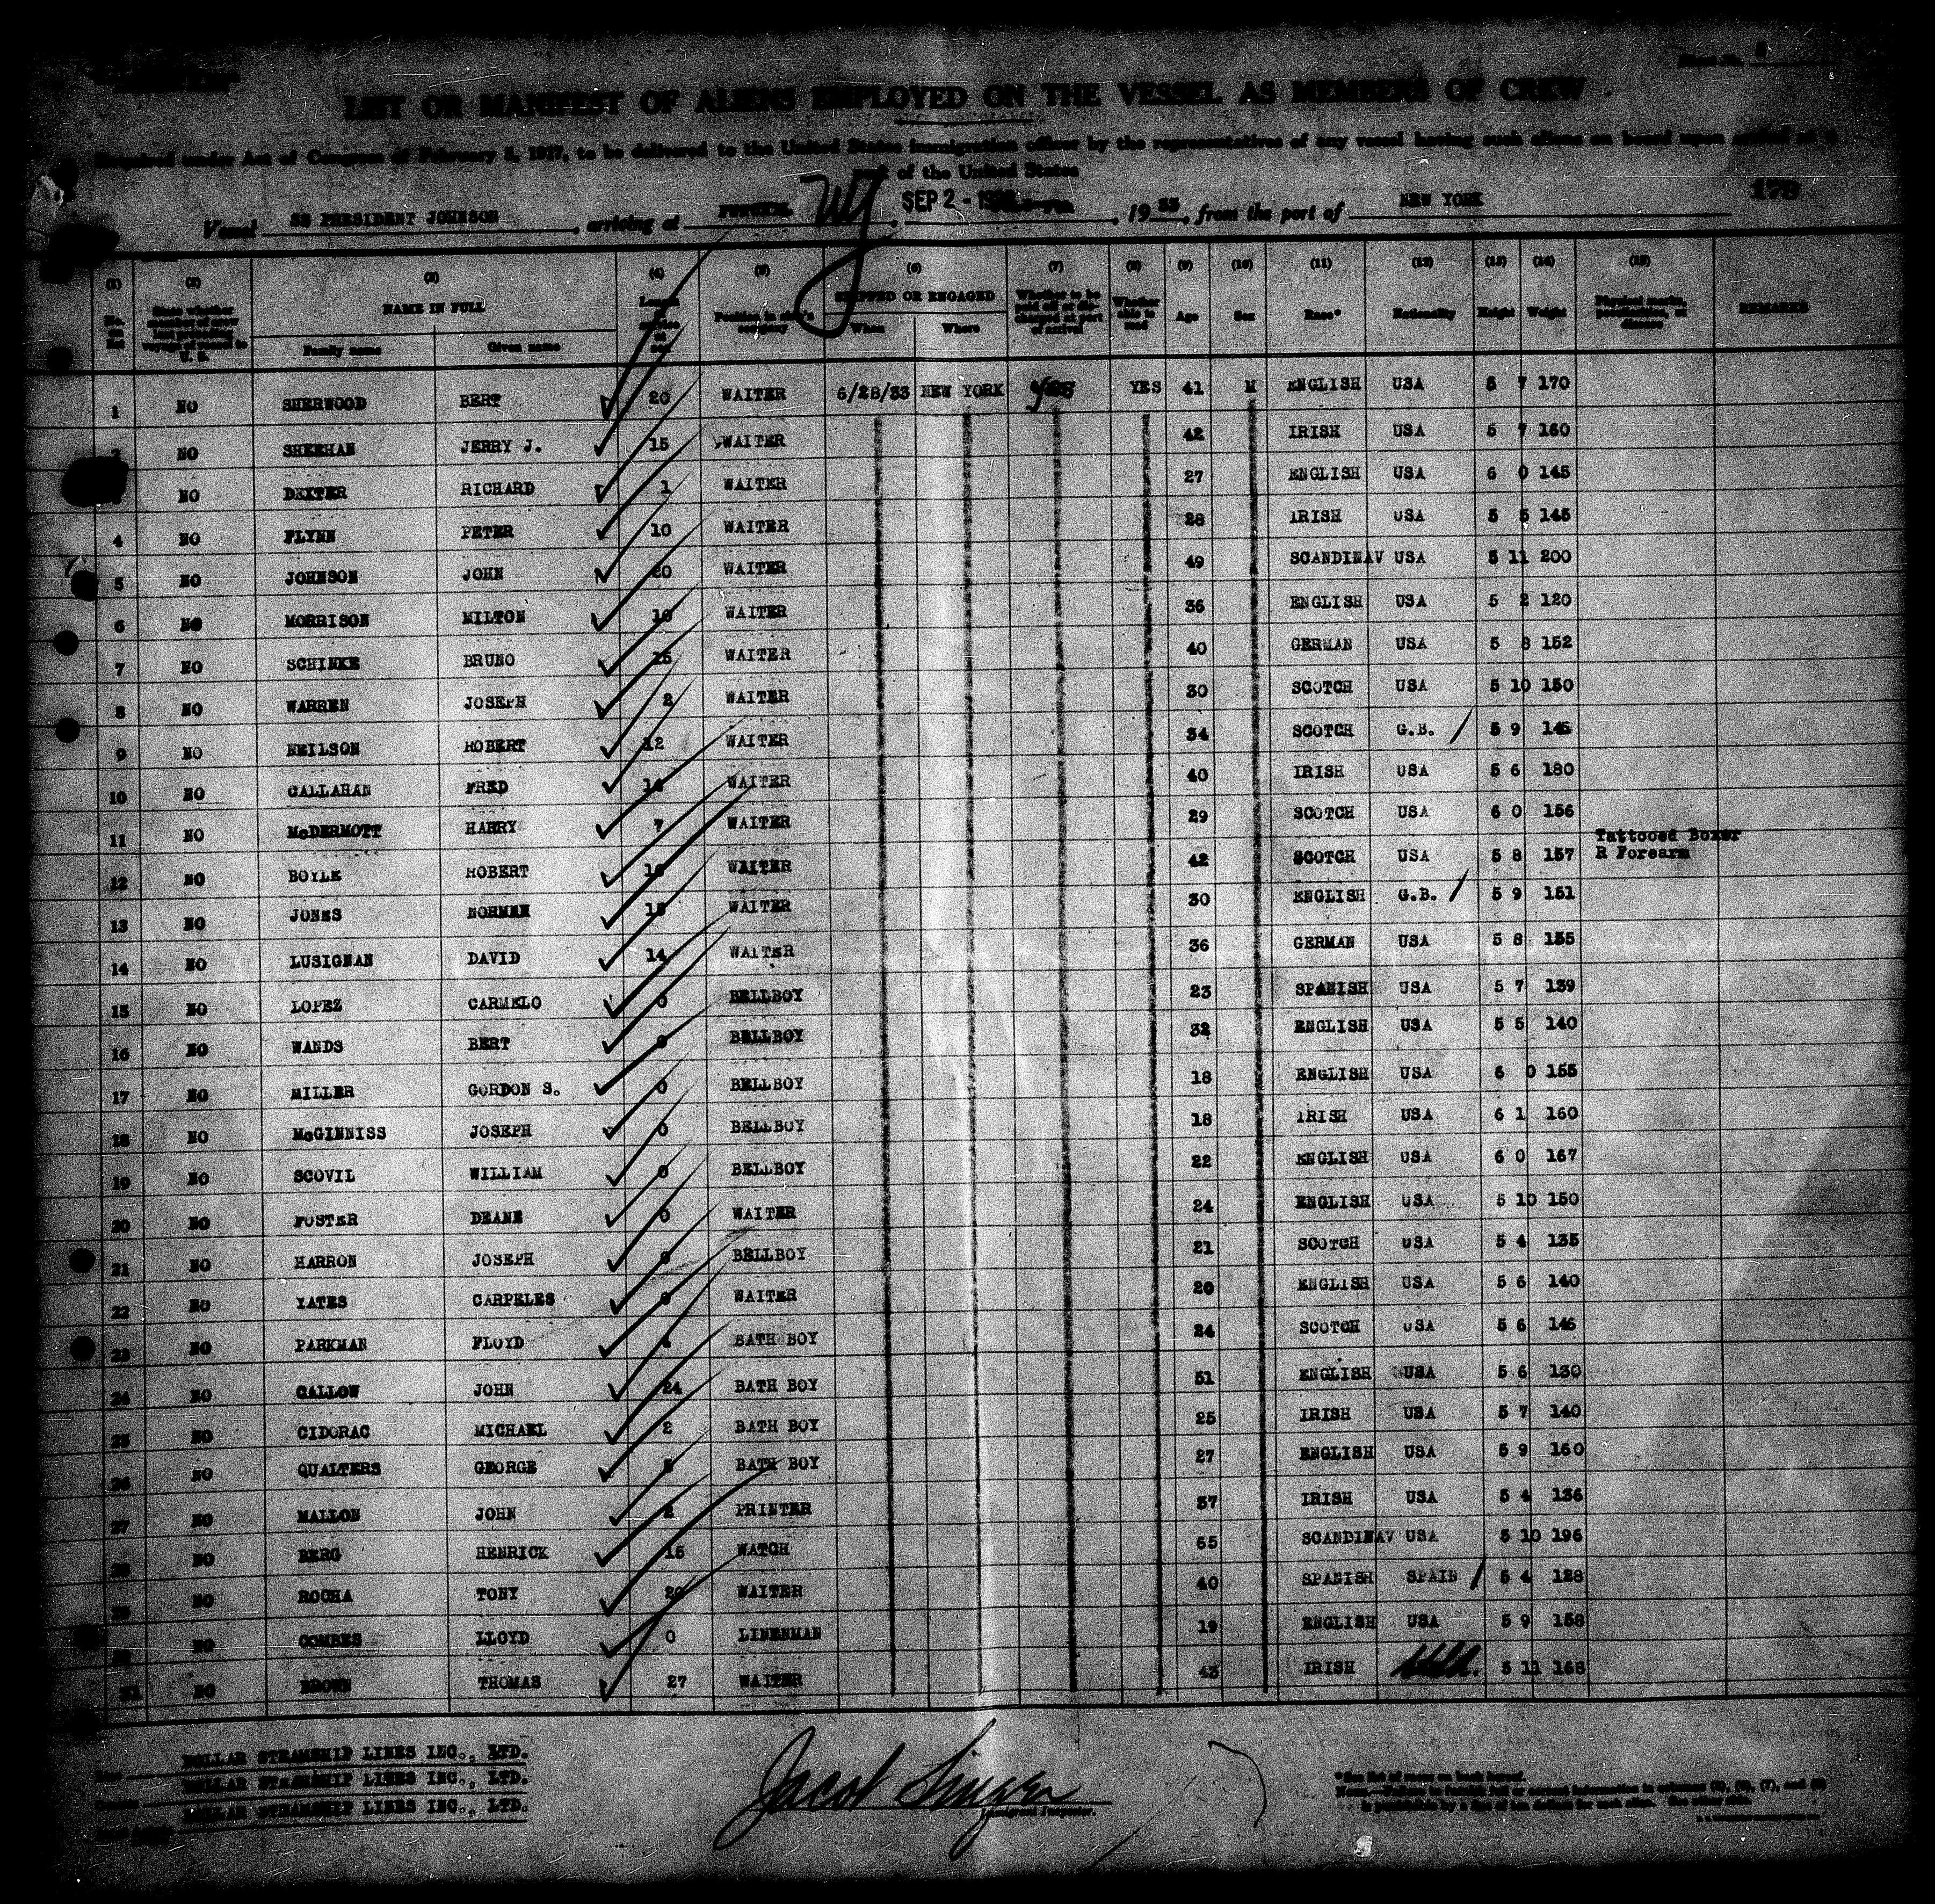 LIST OR MANIFEST OF ALIENS EMPLOYED ON THE VESSEL AS MEMBERS OF CREW
Required under Act of Congress of February 5, 1917, to be delivered to the United States immigration officer by the representatives of any vessel having such aliens on board upon arrival at a
port of the United States
Vessel SS PRESIDENT JOHNSON, arriving at SEP 2 - , 19 33, from the port of NEW YORK
(1) (2) (3) (4) (5) (6) (7) (8) (9) (10) (11) (12) (13) (14) (15)
NAME IN FULL SHIPPED OR ENGAGED REMARKS
Family name Given name Position in ship's company When Where Whether able to read Age Sex Race* Nationality Height Weight
1 NO SHERWOOD BERT 20 WAITER 6/28/33 NEW YORK YES 41 M ENGLISH USA 5 7 170
2 NO SHEEHAN JERRY J. 15 WAITER 42 IRISH USA 5 7 160
NO DEXTER RICHARD 1 WAITER 27 ENGLISH USA 6 0 145
4 NO FLYNN PETER 10 WAITER 28 IRISH USA 5 5 145
5 NO JOHNSON JOHN 20 WAITER 49 SCANDINAV USA 5 11 200
6 NO MORRISON MILTON 10 WAITER 36 ENGLISH USA 5 2 120
7 NO SCHINKE BRUNO 25 WAITER 40 GERMAN USA 5 8 152
8 NO WARREN JOSEPH 2 WAITER 30 SCOTCH USA 5 10 150
9 NO NEILSON ROBERT 12 WAITER 34 SCOTCH G.B. / 5 9 145
10 NO CALLAHAN FRED WAITER 40 IRISH USA 5 6 180
11 NO McDERMOTT HARRY 7 WAITER 29 SCOTCH USA 6 0 156
12 NO BOYLE ROBERT WAITER 42 SCOTCH USA 5 8 157 Tattooed Boxer R Forearm
13 NO JONES NORMAN WAITER 30 ENGLISH G.B. / 5 9 151
14 NO LUSIGNAN DAVID 14 WAITER 36 GERMAN USA 5 8 155
15 NO LOPEZ CARMELO 0 BELLBOY 23 SPANISH USA 5 7 139
16 NO WANDS BERT 0 BELLBOY 32 ENGLISH USA 5 5 140
17 NO MILLER GORDON S. 0 BELLBOY 18 ENGLISH USA 6 0 155
18 NO McGINNISS JOSEPH 0 BELLBOY 18 IRISH USA 6 1 160
19 NO SCOVIL WILLIAM 0 BELLBOY 22 ENGLISH USA 6 0 167
20 NO FOSTER DEANE 0 WAITER 24 ENGLISH USA 5 10 150
21 NO HARRON JOSEPH 0 BELLBOY 21 SCOTCH USA 5 4 135
22 NO YATES CARPELES 0 WAITER 20 ENGLISH USA 5 6 140
23 NO PARKMAN FLOYD BATH BOY 24 SCOTCH USA 5 6 146
24 NO GALLOW JOHN 24 BATH BOY 51 ENGLISH USA 5 6 130
25 NO CIDORAC MICHAEL 2 BATH BOY 25 IRISH USA 5 7 140
26 NO QUALTERS GEORGE BATH BOY 27 ENGLISH USA 5 9 160
27 NO MALLON JOHN 2 PRINTER 37 IRISH USA 5 4 136
28 NO BERG HENRICK 15 WATCH 65 SCANDINAV USA 5 10 196
29 NO ROCHA TONY 20 WAITER 40 SPANISH SPAIN / 5 4 128
NO COMBES LLOYD 0 LINENMAN 19 ENGLISH USA 5 9 158
NO BROWN THOMAS 27 WAITER 43 IRISH 5 11 168
DOLLAR STEAMSHIP LINES INC., LTD.
DOLLAR STEAMSHIP LINES INC., LTD.
DOLLAR STEAMSHIP LINES INC., LTD.
Jacob Singer